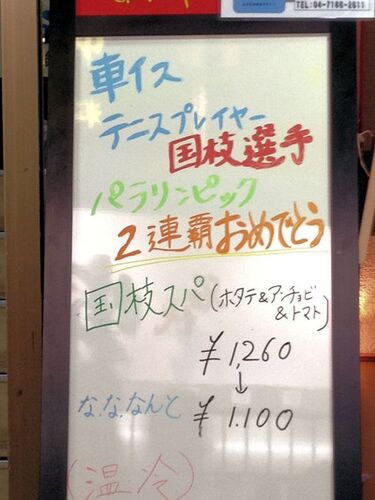 TEL:04-7166-2611
車イス
テニスプレイヤー
国枝選手
パラリンピック
2連覇おうめでとう
国枝スパ(ホタテ&アンチョビ
&トマト)
¥1,260
↓
な、な、なんと ¥1.100
(温冷)